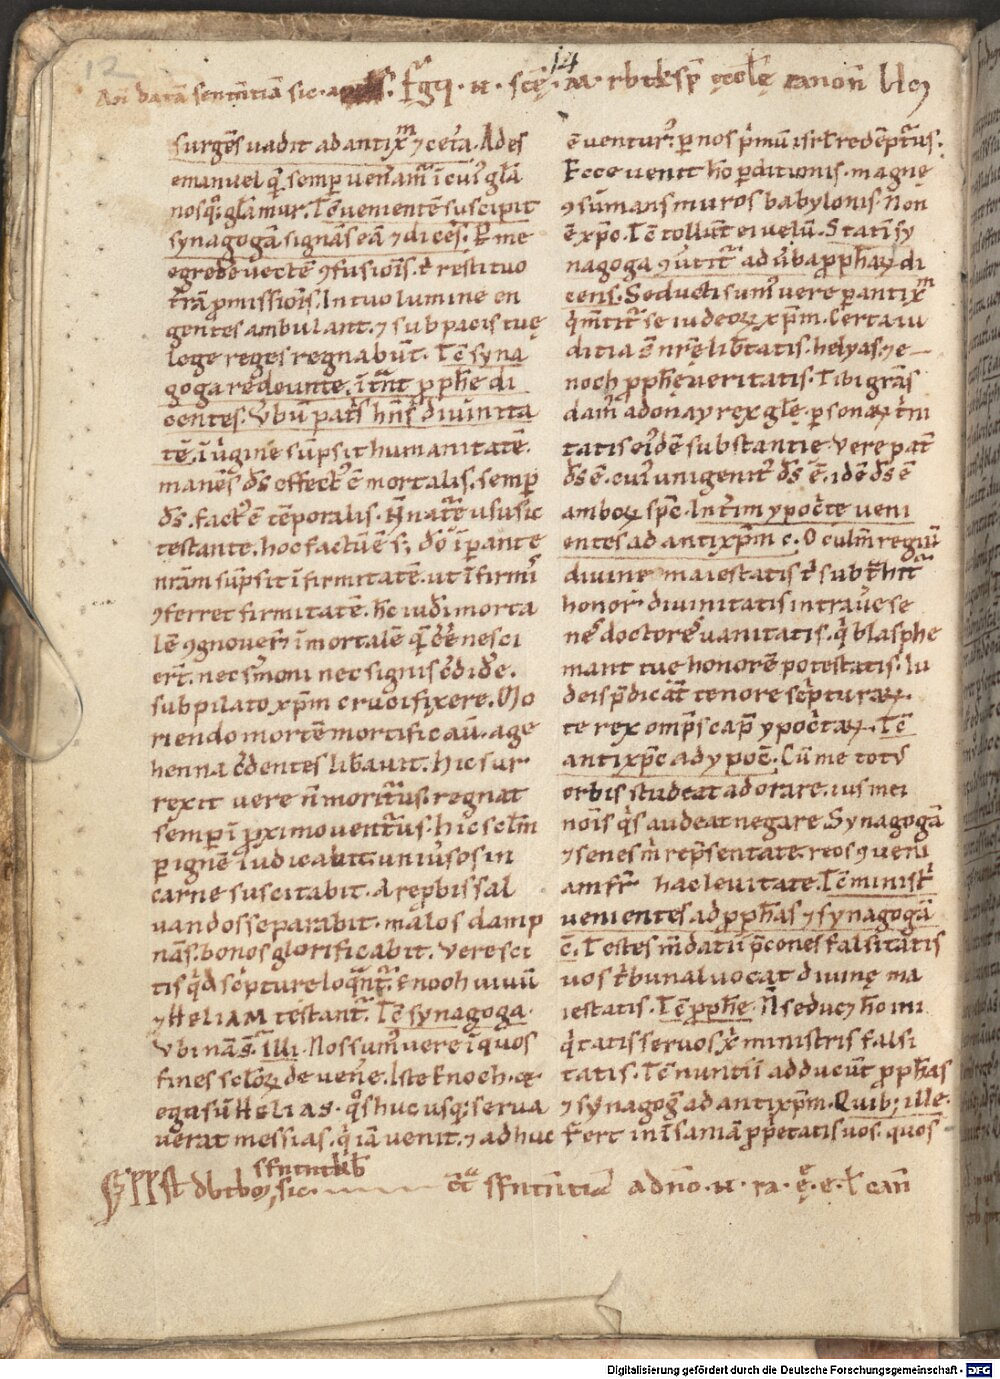 12
14
Añ datā sententiā sic.
surgēs uadit ad antixͫ ⁊ cet̃a. Ades
emanuel q̄ semp ueneram̃ ī cuiꝰ gl̄a
nosq; gl̄amur. Tc̄ uenientē suscipit
synagogā. signās eā ⁊ dicēs. P me
egrede uectē ꝯfusiōis. t̄ restituo
t̄rā ꝓmissiōis. In tuo lumine en
gentes ambulant. ⁊ sub pacis tuę
lege reges regnabūt. Tc̄ syna
goga redeunte. īt̃nt ꝓph̄e di
centes. Vbū pat̃s hn̄s diuinita
tē. ī ũgine sūpsit humanitatē.
manēs d̄s effectꝰ ē mortalis. semp̄
d̄s. factꝰ ē tēporalis. N̄ nat̃e usu sic
testante. hoc factū ē s; dō īpante
nr̄am sūpsit īfirmitatē. ut īfirmĩ
ꝯferret firmitatē. hc̄ iud̃i morta
lē ꝯgnouer̃. īmortalē q̄ c̄ē nesci
er̃t. nec s̃moni nec signis c̃dide.
sub pilato xp̄m crucifixere. Mo
riendo mortē mortificaū. a ge
henna c̃dentes lib̃auit. hic sur
rexit uere n̄ moriturꝰ. regnat
semp ī ꝓximo uenturꝰ. hic sc̄lm
p ignē iudicabit. uniũsos in
carne suscitabit. A repbis sal
uandos separabit. malos damp
nās. bonos glorificabit. Vere sci
tis q̄d sc̃pture loqūnt̃. Enoch uiuū
⁊ HELIAM testant̃. Tc̄ synagoga.
Vbi nā s̄. Illi. Nos sumꝰ uere ī quos
fines sc̄loꝝ deuene. Iste Enoch. ⁊
ego sū HELIAS. q̊s huc usq; serua
uerat messias. q̄ iā uenit. ⁊ adhuc
ē uenturꝰ. p nos p̃mū isrl̄ redēpturꝰ.
Ecce uenit hō pditionis. magnę
ꝯsūmans muros babylonis. Non
ē xp̄c. Tc̄ tollūt ei uelū. Statī sy
nagoga ꝯũtit̃ ad ũba ꝓph̄aꝝ di
cens. Seducti sumꝰ uere p antixͫ
q̄ m̄tit̃ se iudeoꝝ xp̄m. Certa iu
ditia s̄ nr̃ę lib̃tatis. helyas. ⁊ e
noch ꝓph̄ę ueritatis. Tibi gr̄as
dam̃ adonay rex gl̄ę. psonaꝝ t̃ni
tatis eiꝰdē substantię. Vere pat̃
d̄s ē. cuiꝰ unigenitꝰ d̄s ē. idē d̄s ē
amboꝝ sp̄c. Int̃im ypoc̃te ueni
entes ad antixp̄m c. O culm̄ regiū
diuine maiestatis t̄ subt̃hit̃
honor diuinitatis intrauēre se
nes doctores uanitatis. q̄ blasphe
mant tuę honorē potestatis. Iu
deis p̄dicāt tenore sc̃pturaꝝ.
te rex omp̄s capū ypoc̃taꝝ. Tc̄
antixp̄c ad ypoc̃. Cū me totꝰ
orbis studeat adorare. ius mei
nōis q̄s audeat negare. Synagogā
⁊ senes m̄ rep̄sentate. reos ꝯueni
am sr̃ hac leuitate. Tc̄ minist̃
uenientes ad ꝓph̄as ⁊ synagogā
c̄. Testes m̄datū p̄cones falsitatis
uos t̃bunal uocat diuinę ma
iestatis. Tc̄ ꝓph̄ę. N̄ seducꝫ hōi ini
q̄tatis seruos xp̄i ministris falsi
tatis. Tc̄ nuntii adducūt ꝓph̄as
⁊ synagogā ad antixp̄m. Quibꝰ ille.
Fert in īsaniā ꝓp̄etatis uos. quos
Digitalisierung gefördert durch die Deutsche Forschungsgemeinschaft - DFG